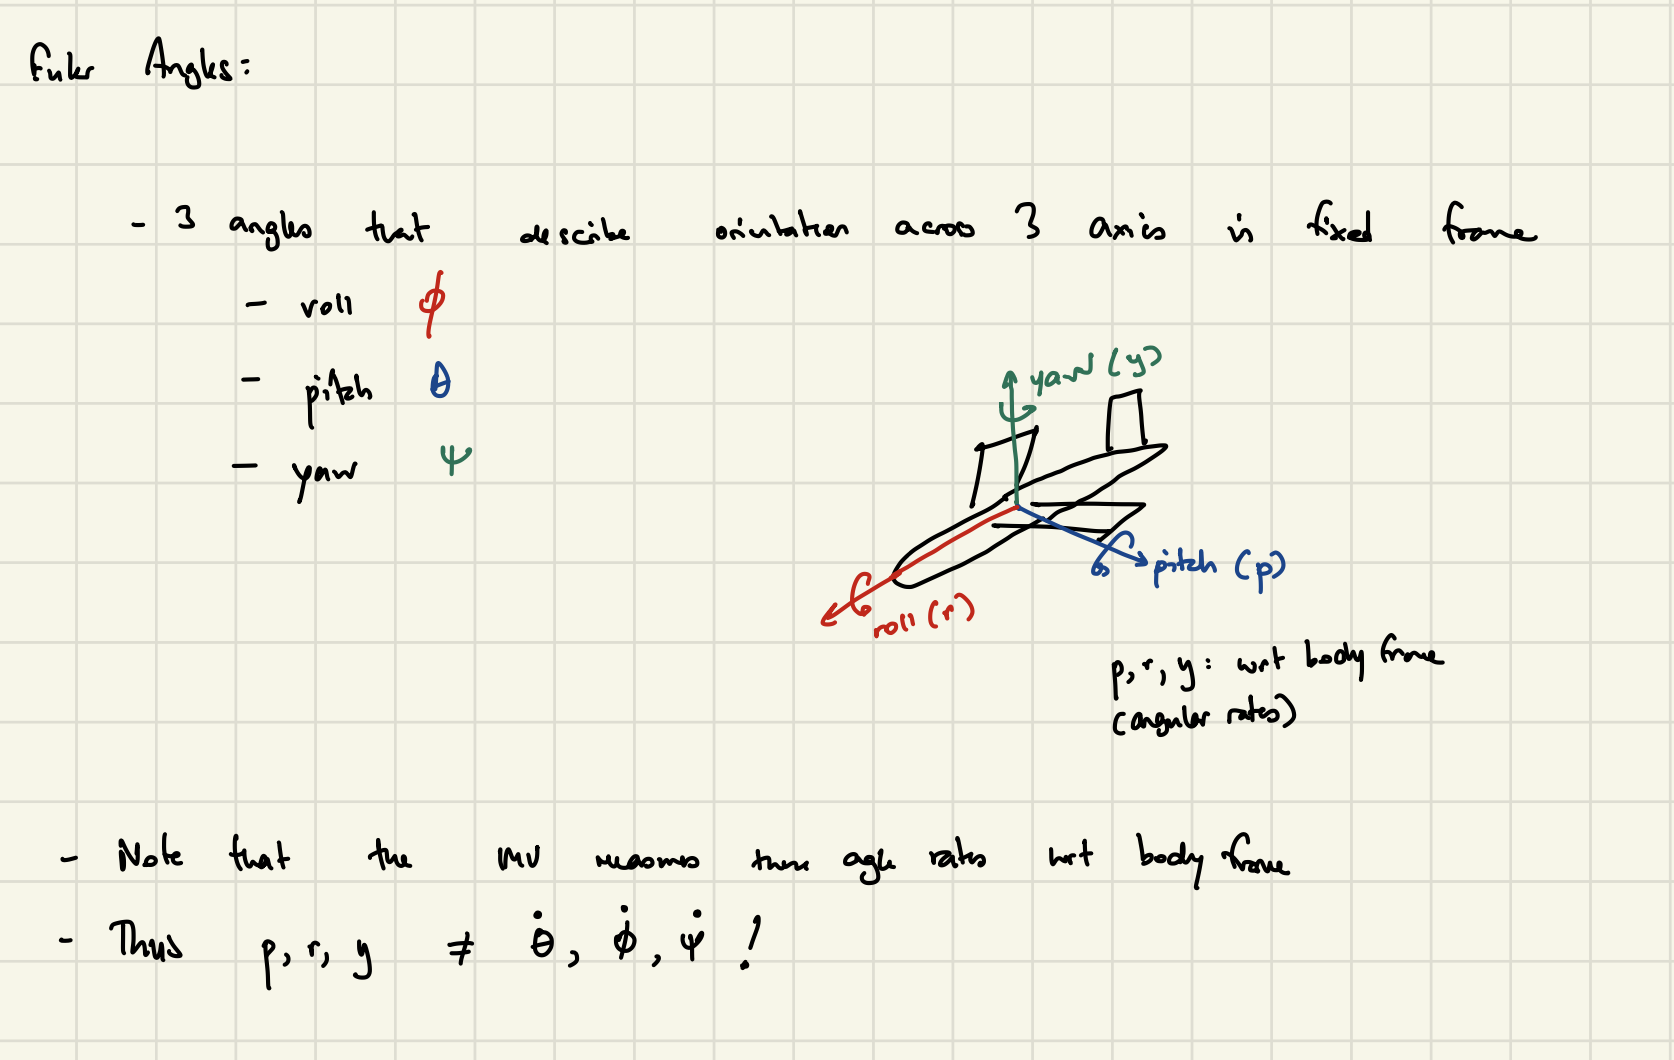 Euler Angles:
- 3 angles that describe orientation across 3 axis in fixed frame
- roll ϕ
- pitch θ
- yaw ψ
yaw (y)
pitch (p)
roll (r)
p, r, y : wrt body frame
(angular rates)
- Note that the IMU measures these angle rates wrt body frame
- Thus p, r, y ≠ θ̇, ϕ̇, ψ̇ !